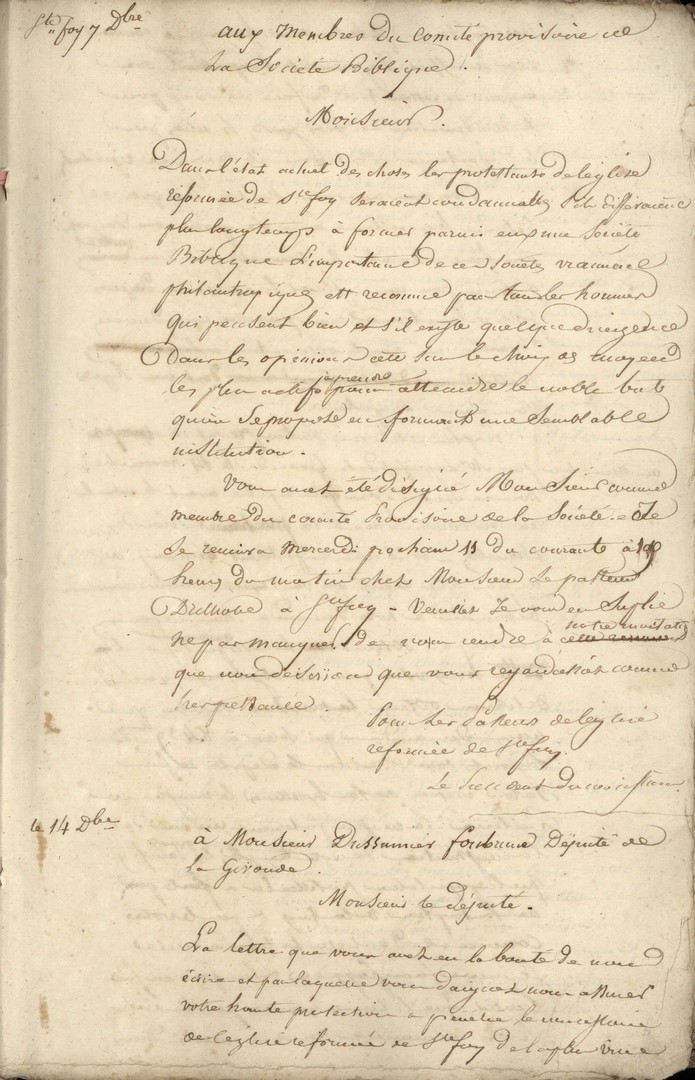 Ste foy 7 Dbre
aux Membres du Comité provisoire de
La Societé Biblique.
Monsieur.
Dans l'état actuel des choses les protestants de l'église
réformée de Ste foy seraient condamnables s'ils différaient
plus longtemps à former parmi eux une Société
Biblique L'importance de ces Sociétés vraiment
philantropiques est reconnue par tous les hommes
qui pensent bien et s'il existe quelque divergence
Dans les opinions c'est sur le choix des moyens
les plus actifs à prendre pour atteindre le noble but
qu'on se propose en formant une Semblable
institution.
Vous avez été désigné Monsieur comme
membre du comité provisoire de la Société
Se reunira Mercredi prochain 11 du courant à
heures du matin chez Monsieur Le pasteur
à Ste foy - Veuillez Je vous en Suplie
ne pas manquer de vous rendre à notre invitation
que nous desirons que vous regardassiez comme
tres pressante.
Pour Les Pasteurs de l'église
reformée de Ste foy.
Le President du consistoire.
le 14 Dbre
à Monsieur Dussumier fonbrune Député de
la Gironde.
Monsieur le député.
La lettre que vous avez eu la bonté de nous
écrire et par laquelle vous daignez nous assurer
votre haute protection a pénétré le consistoire
de l'église réformée de Ste foy de la plus vive